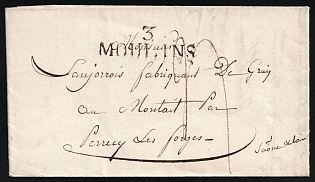 3
MOULINS
Monsieur
fabriquant De Grès
au Montait Par
Perrecy Les forges
Saône et Loire